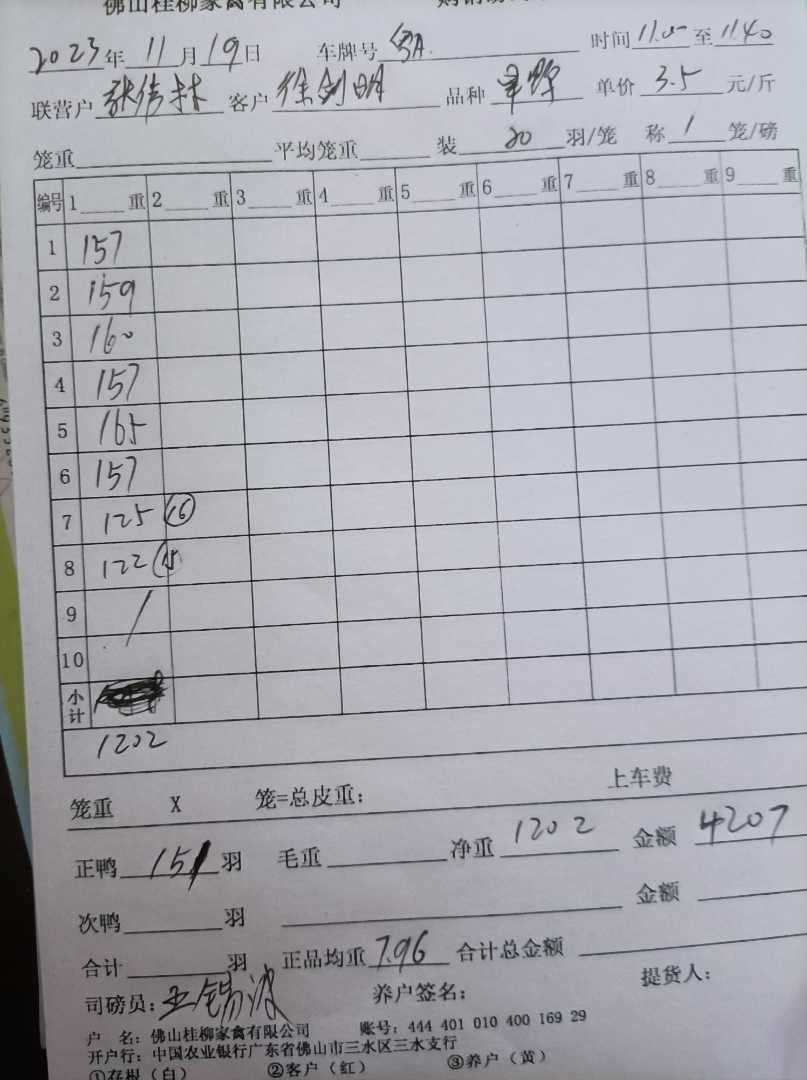 佛山桂柳家禽有限公司
2023年11月19日 车牌号 粤A 时间11.05至11.40
联营户 张伟林 客户 徐剑明 品种 单价 3.5 元/斤
笼重 平均笼重 装 20 羽/笼 称 1 笼/磅
编号 1 重 2 重 3 重 4 重 5 重 6 重 7 重 8 重 9 重
1 157
2 159
3 160
4 157
5 165
6 157
7 125 (16)
8 122 (15)
9 /
10
小计
1202
笼重 X 笼=总皮重: 上车费
正鸭 151 羽 毛重 净重 1202 金额 4207
次鸭 羽 金额
合计 羽 正品均重 7.96 合计总金额
司磅员: 王锡波 养户签名: 提货人:
户 名: 佛山桂柳家禽有限公司 账号: 444 401 010 400 169 29
开户行: 中国农业银行广东省佛山市三水区三水支行
①存根(白) ②客户(红) ③养户(黄)